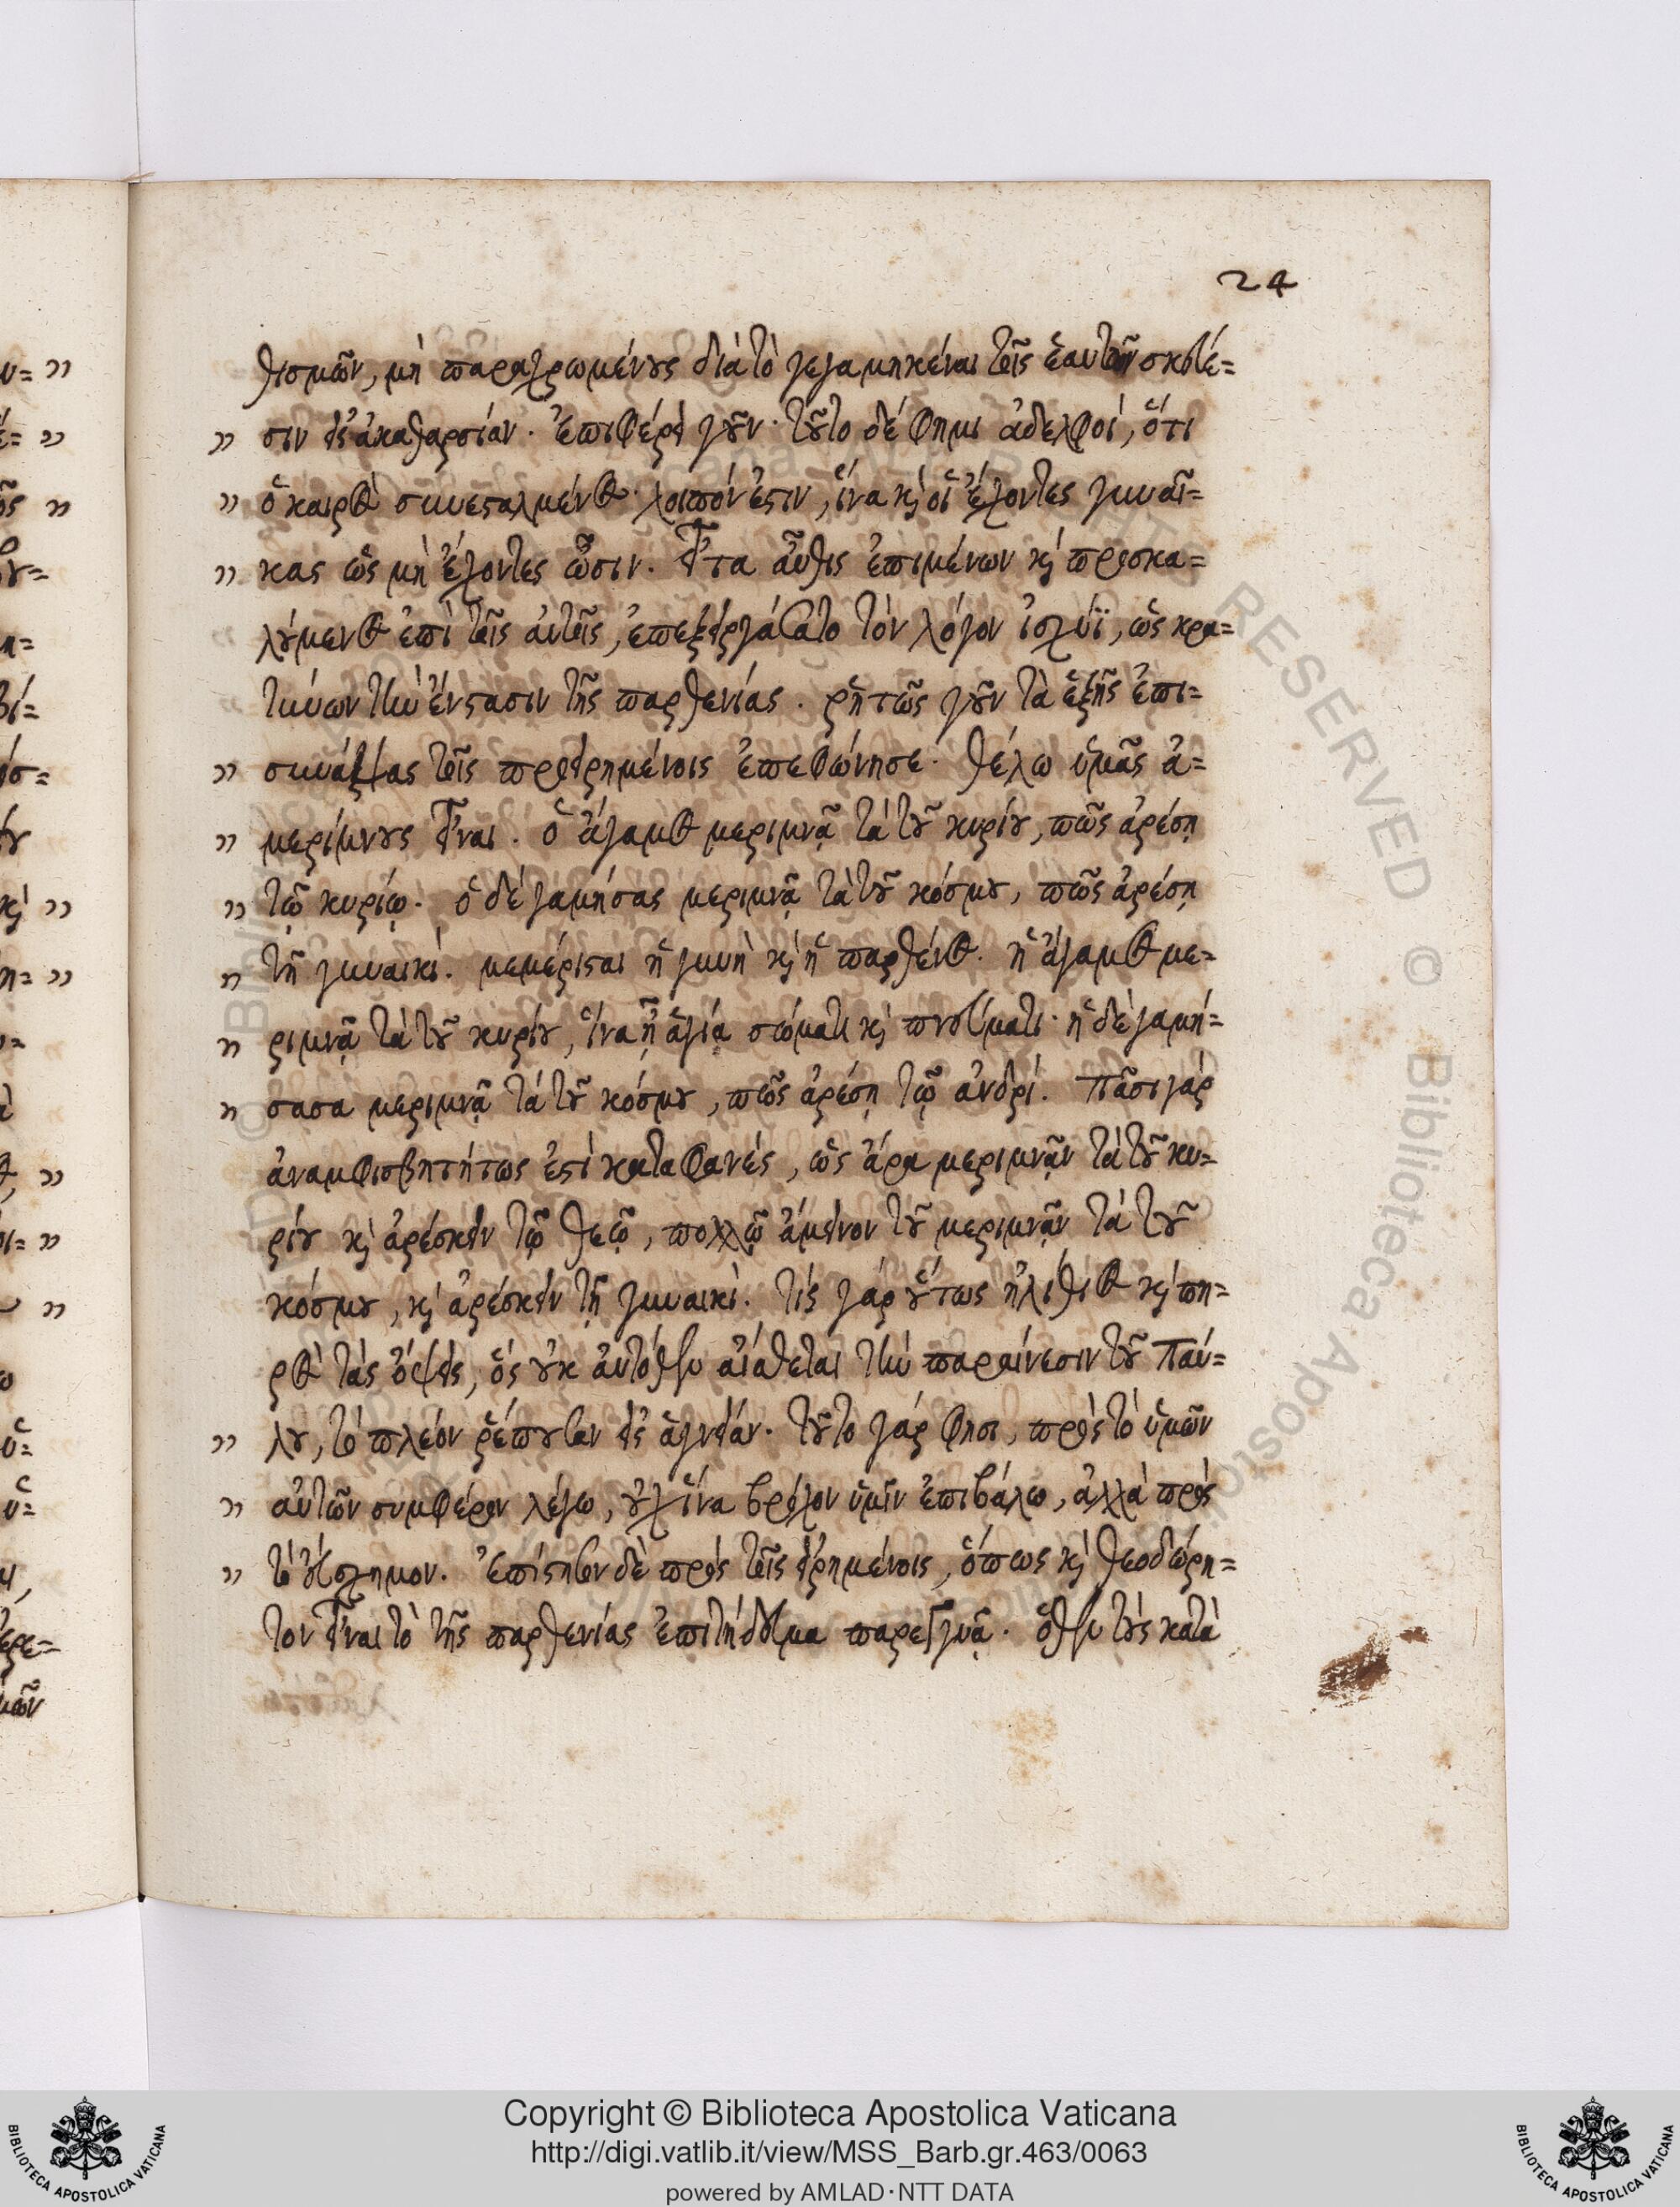 24
θισμῶν, μὴ παρατρωμένους διὰ τὸ γεγαμηκέναι τοῖς ἑαυτῶν σκεύε=
" σιν εἰς ἀκαθαρσίαν. ἐπιφέρει γοῦν· τοῦτο δέ φημι ἀδελφοί, ὅτι
" ὁ καιρὸς συνεσταλμένος· λοιπόν ἐστιν, ἵνα καὶ οἱ ἔχοντες γυναῖ=
" κας ὡς μὴ ἔχοντες ὦσιν. εἶτα αὖθις ἐπιμένων καὶ προσκα=
λούμενος ἐπὶ τοῖς αὐτοῖς, ἐπεξειργάσατο τὸν λόγον ἰσχύϊ, ὡς κρα=
τύνων τὴν ἔνστασιν τῆς παρθενίας. ῥητῶς γοῦν τὰ ἑξῆς ἐπι=
" συνάψας τοῖς προειρημένοις ἐπεφώνησε· θέλω ὑμᾶς ἀ=
" μερίμνους εἶναι. ὁ ἄγαμος μεριμνᾷ τὰ τοῦ κυρίου, πῶς ἀρέσῃ
" τῷ κυρίῳ. ὁ δὲ γαμήσας μεριμνᾷ τὰ τοῦ κόσμου, πῶς ἀρέσῃ
" τῇ γυναικί. μεμέρισται ἡ γυνὴ καὶ ἡ παρθένος. ἡ ἄγαμος με=
" ριμνᾷ τὰ τοῦ κυρίου, ἵνα ᾖ ἁγία σώματι καὶ πνεύματι· ἡ δὲ γαμή=
" σασα μεριμνᾷ τὰ τοῦ κόσμου, πῶς ἀρέσῃ τῷ ἀνδρί. πᾶσι γάρ
ἀναμφισβητήτως ἐστὶ καταφανές, ὡς ἄρα μεριμνᾷν τὰ τοῦ κυ=
ρίου καὶ ἀρέσκειν τῷ θεῷ, πολλῷ ἄμεινον τοῦ μεριμνᾷν τὰ τοῦ
κόσμου, καὶ ἀρέσκειν τῇ γυναικί. τίς γὰρ οὕτως ἠλίθιος καὶ πη=
ρὸς τὰς ὄψεις, ὃς οὐκ αὐτόθεν αἰσθεται τὴν παραίνεσιν τοῦ Παύ=
" λου, τὸ πλέον ῥέπουσαν εἰς ἁγνείαν. τοῦτο γάρ φησι, πρὸς τὸ ὑμῶν
" αὐτῶν συμφέρον λέγω, οὐχ ἵνα βρόχον ὑμῖν ἐπιβάλω, ἀλλὰ πρὸς
" τὸ εὔσχημον. ἐπίστησον δὲ πρὸς τοῖς εἰρημένοις, ὅπως καὶ θεοδώρη=
τον εἶναι τὸ τῆς παρθενίας ἐπιτήδευμα παρεγγυᾷ. ὅθεν τοὺς κατὰ
Copyright © Biblioteca Apostolica Vaticana
http://digi.vatlib.it/view/MSS_Barb.gr.463/0063
powered by AMLAD·NTT DATA